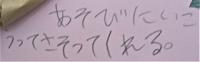 あそびにいこ
うってさそってくれる。